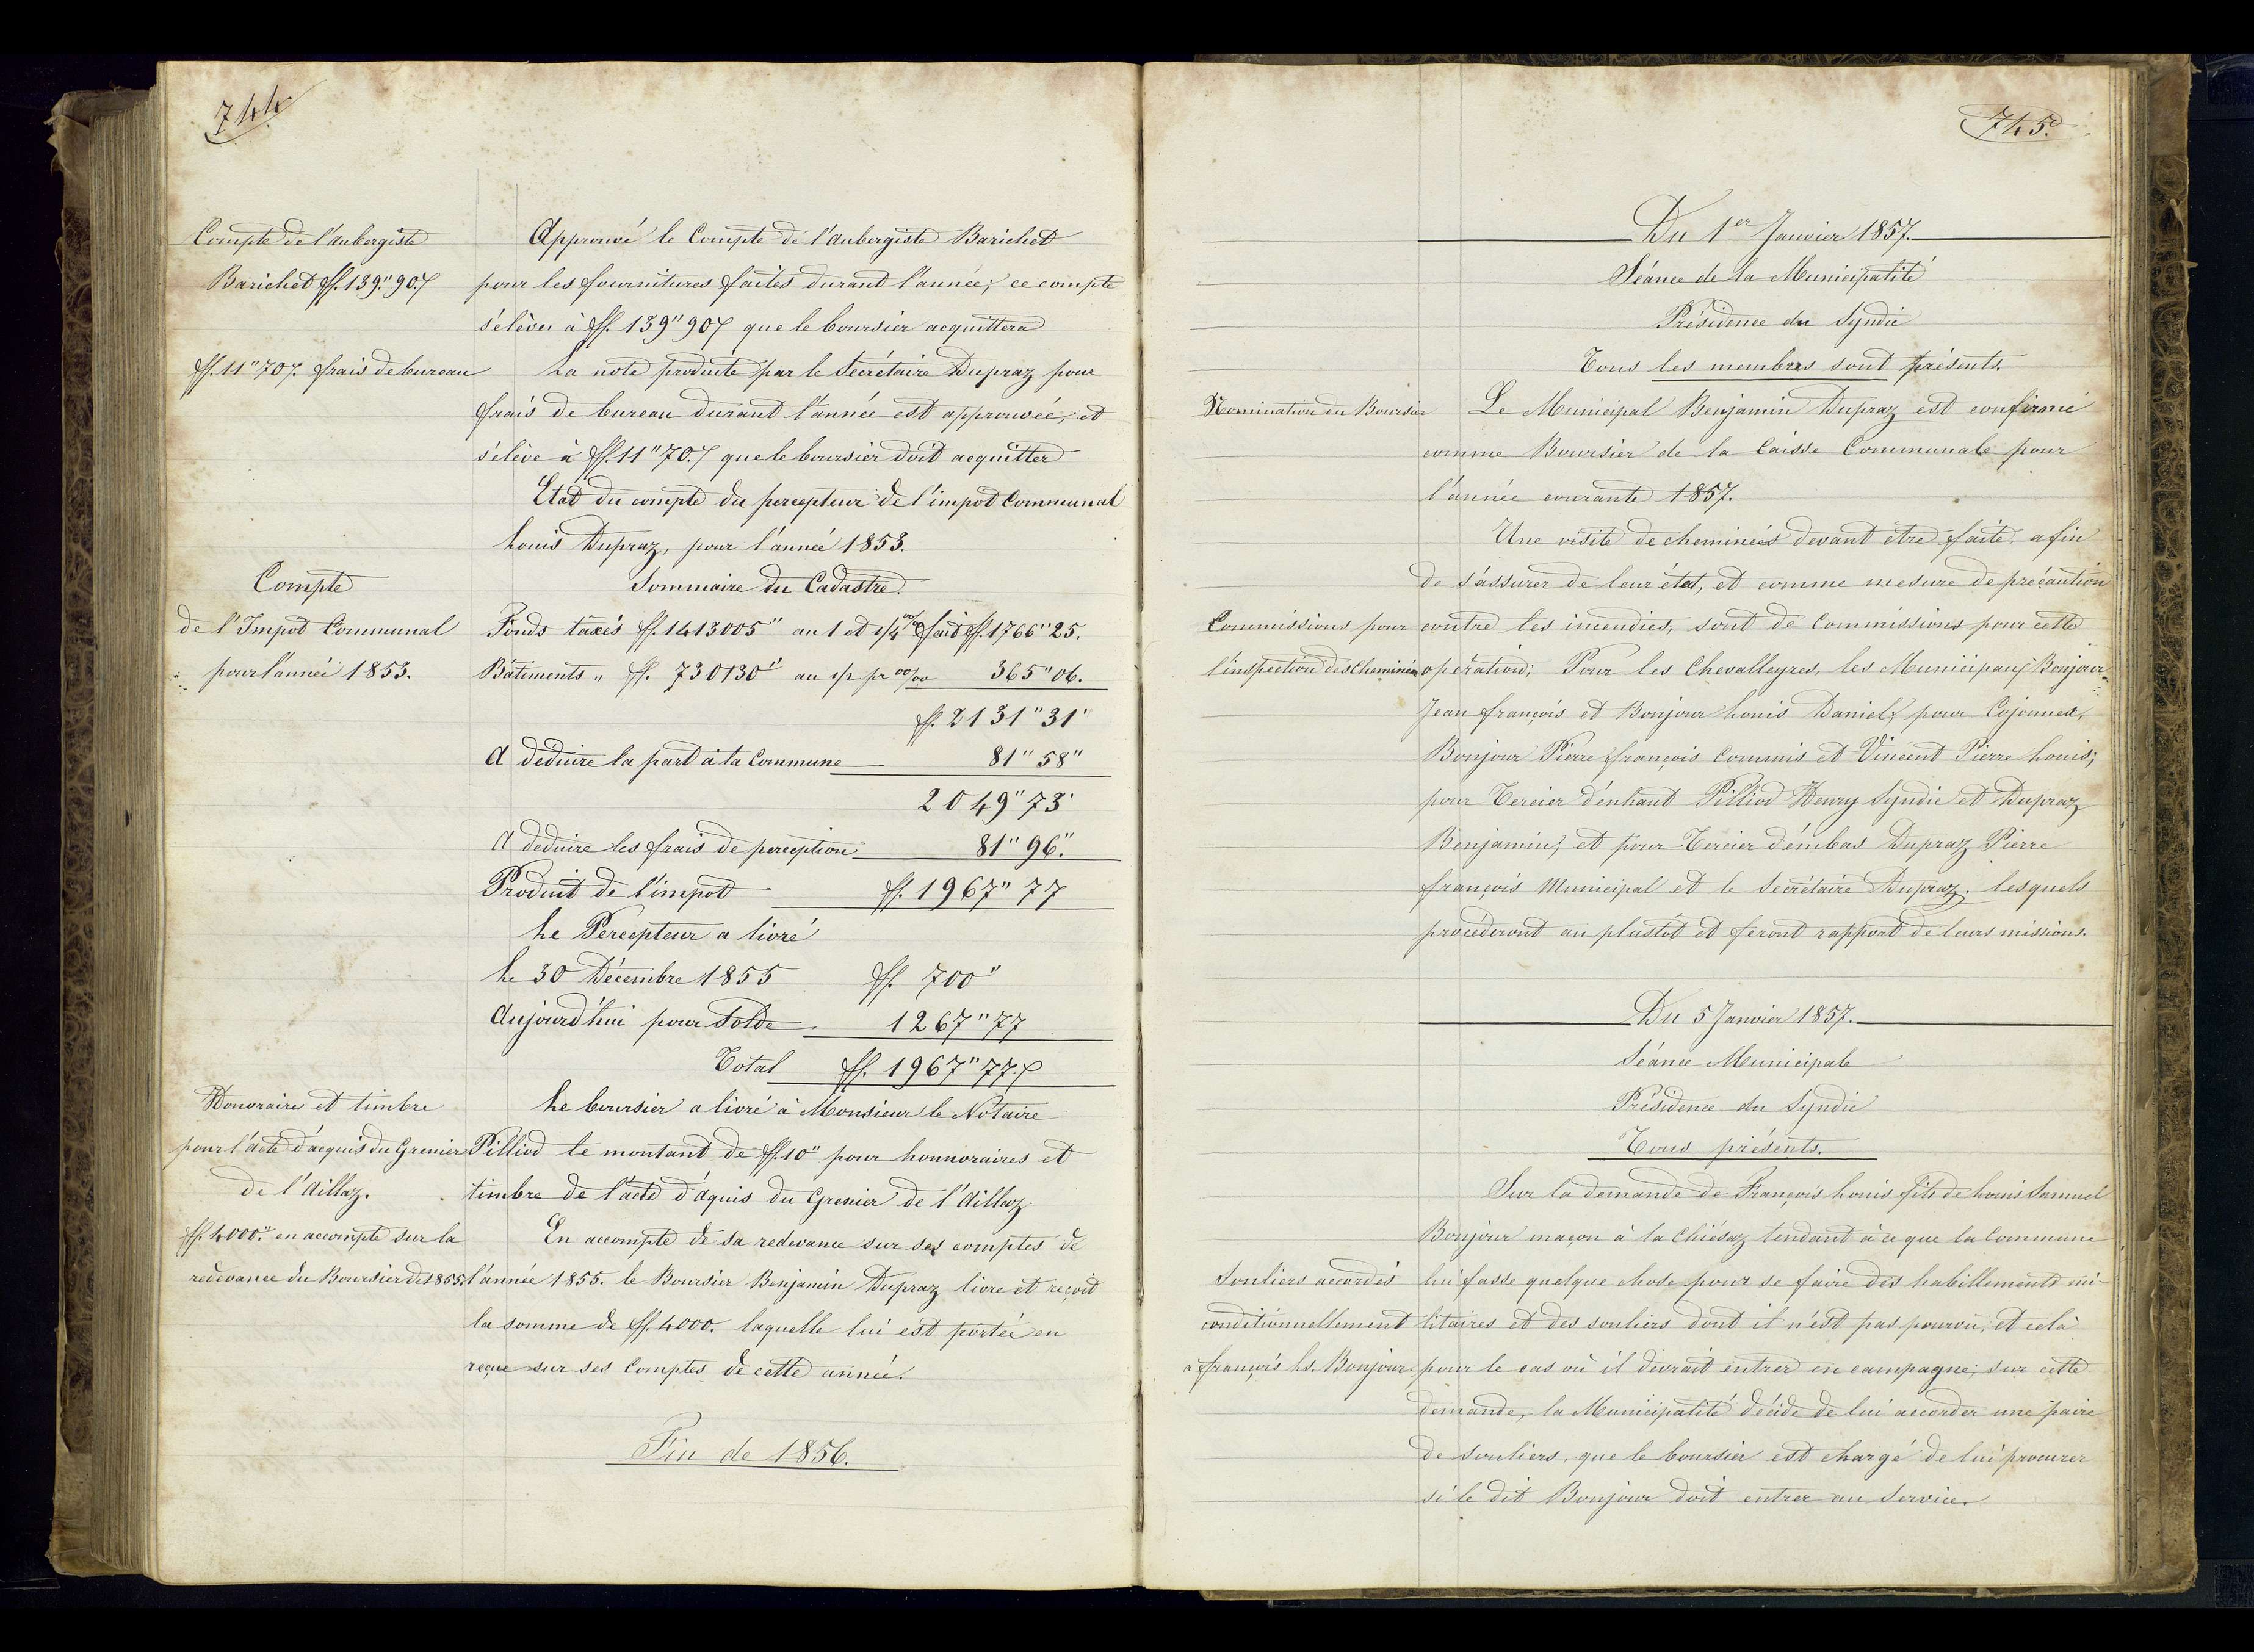 744
Compte de l'aubergiste
Barichet ff. 139" 90.
Approuvé le Compte de l'aubergiste Barichet
pour les fournitures faites durant l'année; ce compte
s'élève à ff. 139" 90 que le boursier acquittera
ff. 11" 70. frais de bureau
La note produite par le Secrétaire Dupraz pour
frais de bureau durant l'année est approuvée, et
s'élève à ff. 11" 70. que le boursier doit acquitter
Etat du compte du percepteur de l'impot Communal
Louis Dupraz, pour l'année 1853.
Compte
de l'Impot Communal
pour l'année 1853.
Sommaire du Cadastre.
Fonds taxés ff. 1413005" au 1 et 1/4 00/00 fait ff. 1766" 25.
Bâtiments " ff. 730130" au 1/2 pr 00/00 365" 06.
ff. 2131" 31
A déduire la part à la Commune 81" 58"
2049" 73
A déduire les frais de perception 81" 96."
Produit de l'impot ff. 1967" 77
Le Percepteur a livré
Le 30 Décembre 1855 ff. 700"
Aujourd'hui pour Solde 1267" 77
Total ff. 1967" 77.
Honoraires et timbre
pour l'acte d'acquis du Grenier
de l'Aillaz.
Le boursier a livré à Monsieur le Notaire
Pilliod le montant de ff. 10" pour honnoraires et
timbre de l'acte d'aquis du Grenier de l'Aillaz.
ff. 4000." en accompte sur la
redevance du Boursier de 1855.
En accompte de sa redevance sur ses comptes de
l'année 1855. le Boursier Benjamin Dupraz livre et reçoit
la somme de ff. 4000. laquelle lui est portée en
reçue sur ses Comptes de cette année.
Fin de 1856.
745.
Du 1er Janvier 1857.
Séance de la Municipalité
Présidence du Syndic
Tous les membres sont présents.
Nomination du Boursier
Le Municipal Benjamin Dupraz est confirmé
comme Boursier de la Caisse Communale pour
l'année courante 1857.
Une visite de cheminées devant être faite, afin
de s'assurer de leur état, et comme mesure de précaution
Commissions pour
l'inspection des cheminées
contre les incendies, sont de Commissions pour cette
opération; Pour les Chevalleyres, les Municipaux Bonjour
Jean françois et Bonjour Louis Daniel; pour Cojonnex,
Bonjour Pierre françois Commis et Vincent Pierre Louis;
pour Tercier d'enhaut Pilliod Henry Syndic et Dupraz
Benjamin; et pour Tercier d'embas Dupraz Pierre
françois Municipal et le Secrétaire Dupraz. lesquels
procéderont au plustôt et feront rapport de leurs missions.
Du 5 Janvier 1857.
Séance Municipale
Présidence du Syndic
Tous présents.
Sur la demande de François Louis fils de Louis Samuel
Bonjour maçon à la Chiésaz tendant à ce que la Commune
Souliers accordés
conditionnellement
à françois Ls. Bonjour
lui fasse quelque chose pour se faire des habillements mi-
litaires et des souliers dont il n'est pas pourvu, et celà
pour le cas où il devrait entrer en campagne; sur cette
demande, la Municipalité décide de lui accorder une paire
de Souliers, que le boursier est chargé de lui procurer
si le dit Bonjour doit entrer au Service.